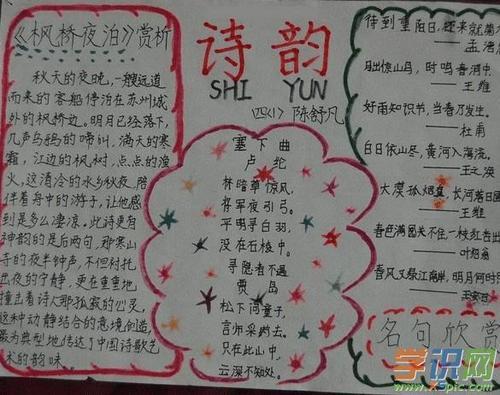 《枫桥夜泊》赏析
秋天的夜晚,一艘远道
而来的客船停泊在苏州城
外的枫桥边。明月已经落下,
几声乌鸦的啼叫,满天的寒
霜,江边的枫树,点点的渔
火,这清冷的水乡秋夜,陪
伴着舟中的游子,让他感
到是多么凄凉。此诗更有
神韵的是后两句,那寒山
寺的夜半钟声,不但衬托
出夜的宁静,更在重重地
撞击着诗人那孤寂的心灵,
这种动静结合的意境创造,
最为典型地传达了中国诗歌艺
术的韵味。
诗韵
SHI YUN
四(1) 陈舒凡
塞下曲
卢纶
林暗草惊风,
将军夜引弓。
平明寻白羽,
没在石棱中。
寻隐者不遇
贾岛
松下问童子,
言师采药去。
只在此山中,
云深不知处。
待到重阳日,还来就菊
——孟浩
月出惊山鸟,时鸣春涧中。
——王维
好雨知时节,当春乃发生。
——杜甫
白日依山尽,黄河入海流。
——王之涣
大漠孤烟直,长河落日圆
——王维
春色满园关不住,一枝红杏出
——叶绍翁
春风又绿江南岸,明月何时
——王安石
名句欣赏
学识网
www.xspic.com